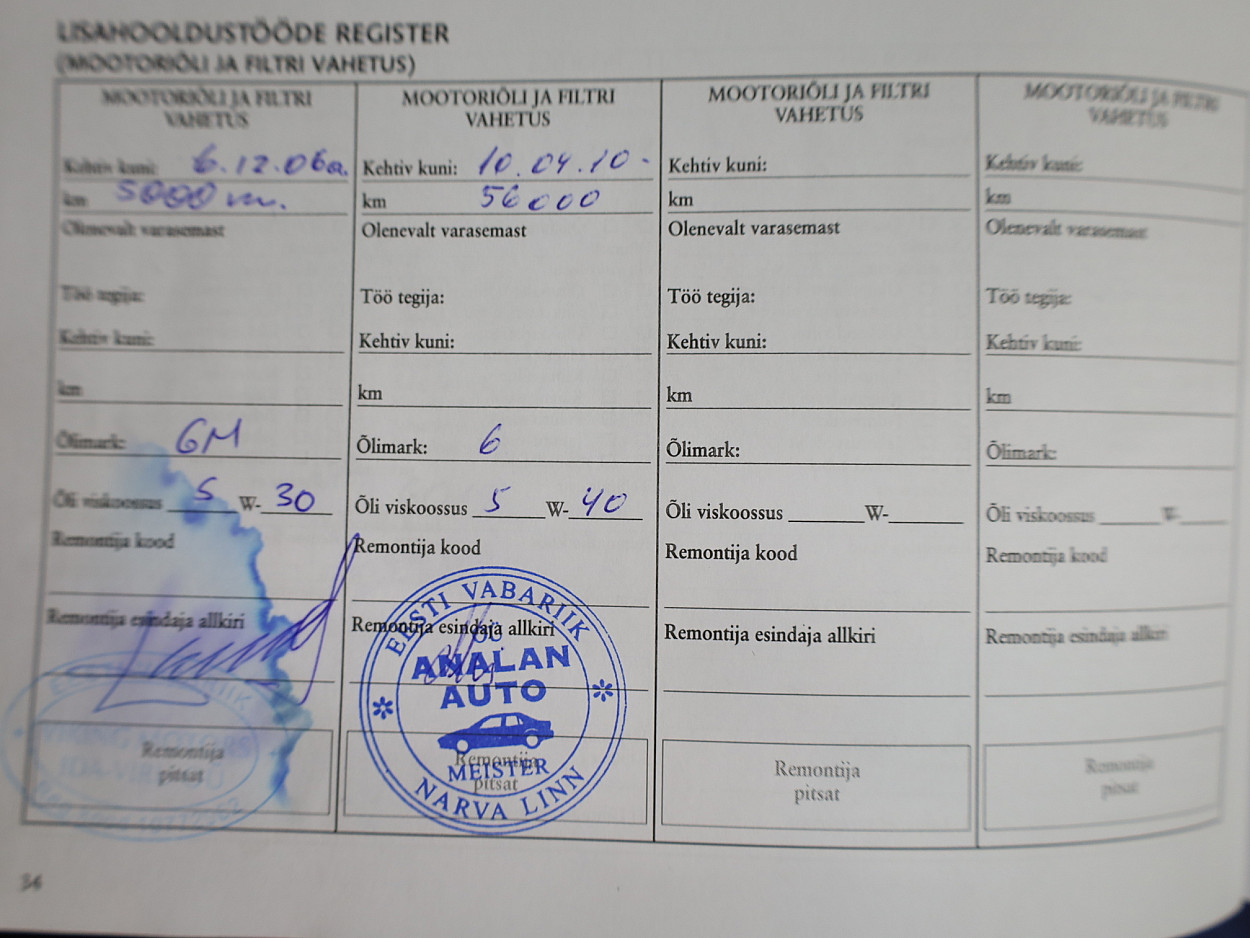 LISAHOOLDUSTÖÖDE REGISTER
(MOOTORIÕLI JA FILTRI VAHETUS)
MOOTORIÕLI JA FILTRI
VAHETUS
Kehtiv kuni: 6.12.06a.
km 5000 m.
Olenevalt varasemast
Töö tegija:
Kehtiv kuni:
km
Õlimark: GM
Õli viskoossus 5 W- 30
Remontija kood
Remontija esindaja allkiri
VIKING MOTORS
IDA-VIRU OÜ
Remontija
pitsat
MOOTORIÕLI JA FILTRI
VAHETUS
Kehtiv kuni: 10.04.10.
km 56000
Olenevalt varasemast
Töö tegija:
Kehtiv kuni:
km
Õlimark: 6
Õli viskoossus 5 W- 40
Remontija kood
Remontija esindaja allkiri
EESTI VABARIIK
OÜ
ANALAN
AUTO
MEISTER
NARVA LINN
Remontija
pitsat
MOOTORIÕLI JA FILTRI
VAHETUS
Kehtiv kuni:
km
Olenevalt varasemast
Töö tegija:
Kehtiv kuni:
km
Õlimark:
Õli viskoossus W-
Remontija kood
Remontija esindaja allkiri
Remontija
pitsat
MOOTORIÕLI JA FILTRI
VAHETUS
Kehtiv kuni:
km
Olenevalt varasemast
Töö tegija:
Kehtiv kuni:
km
Õlimark:
Õli viskoossus W-
Remontija kood
Remontija esindaja allkiri
Remontija
pitsat
34